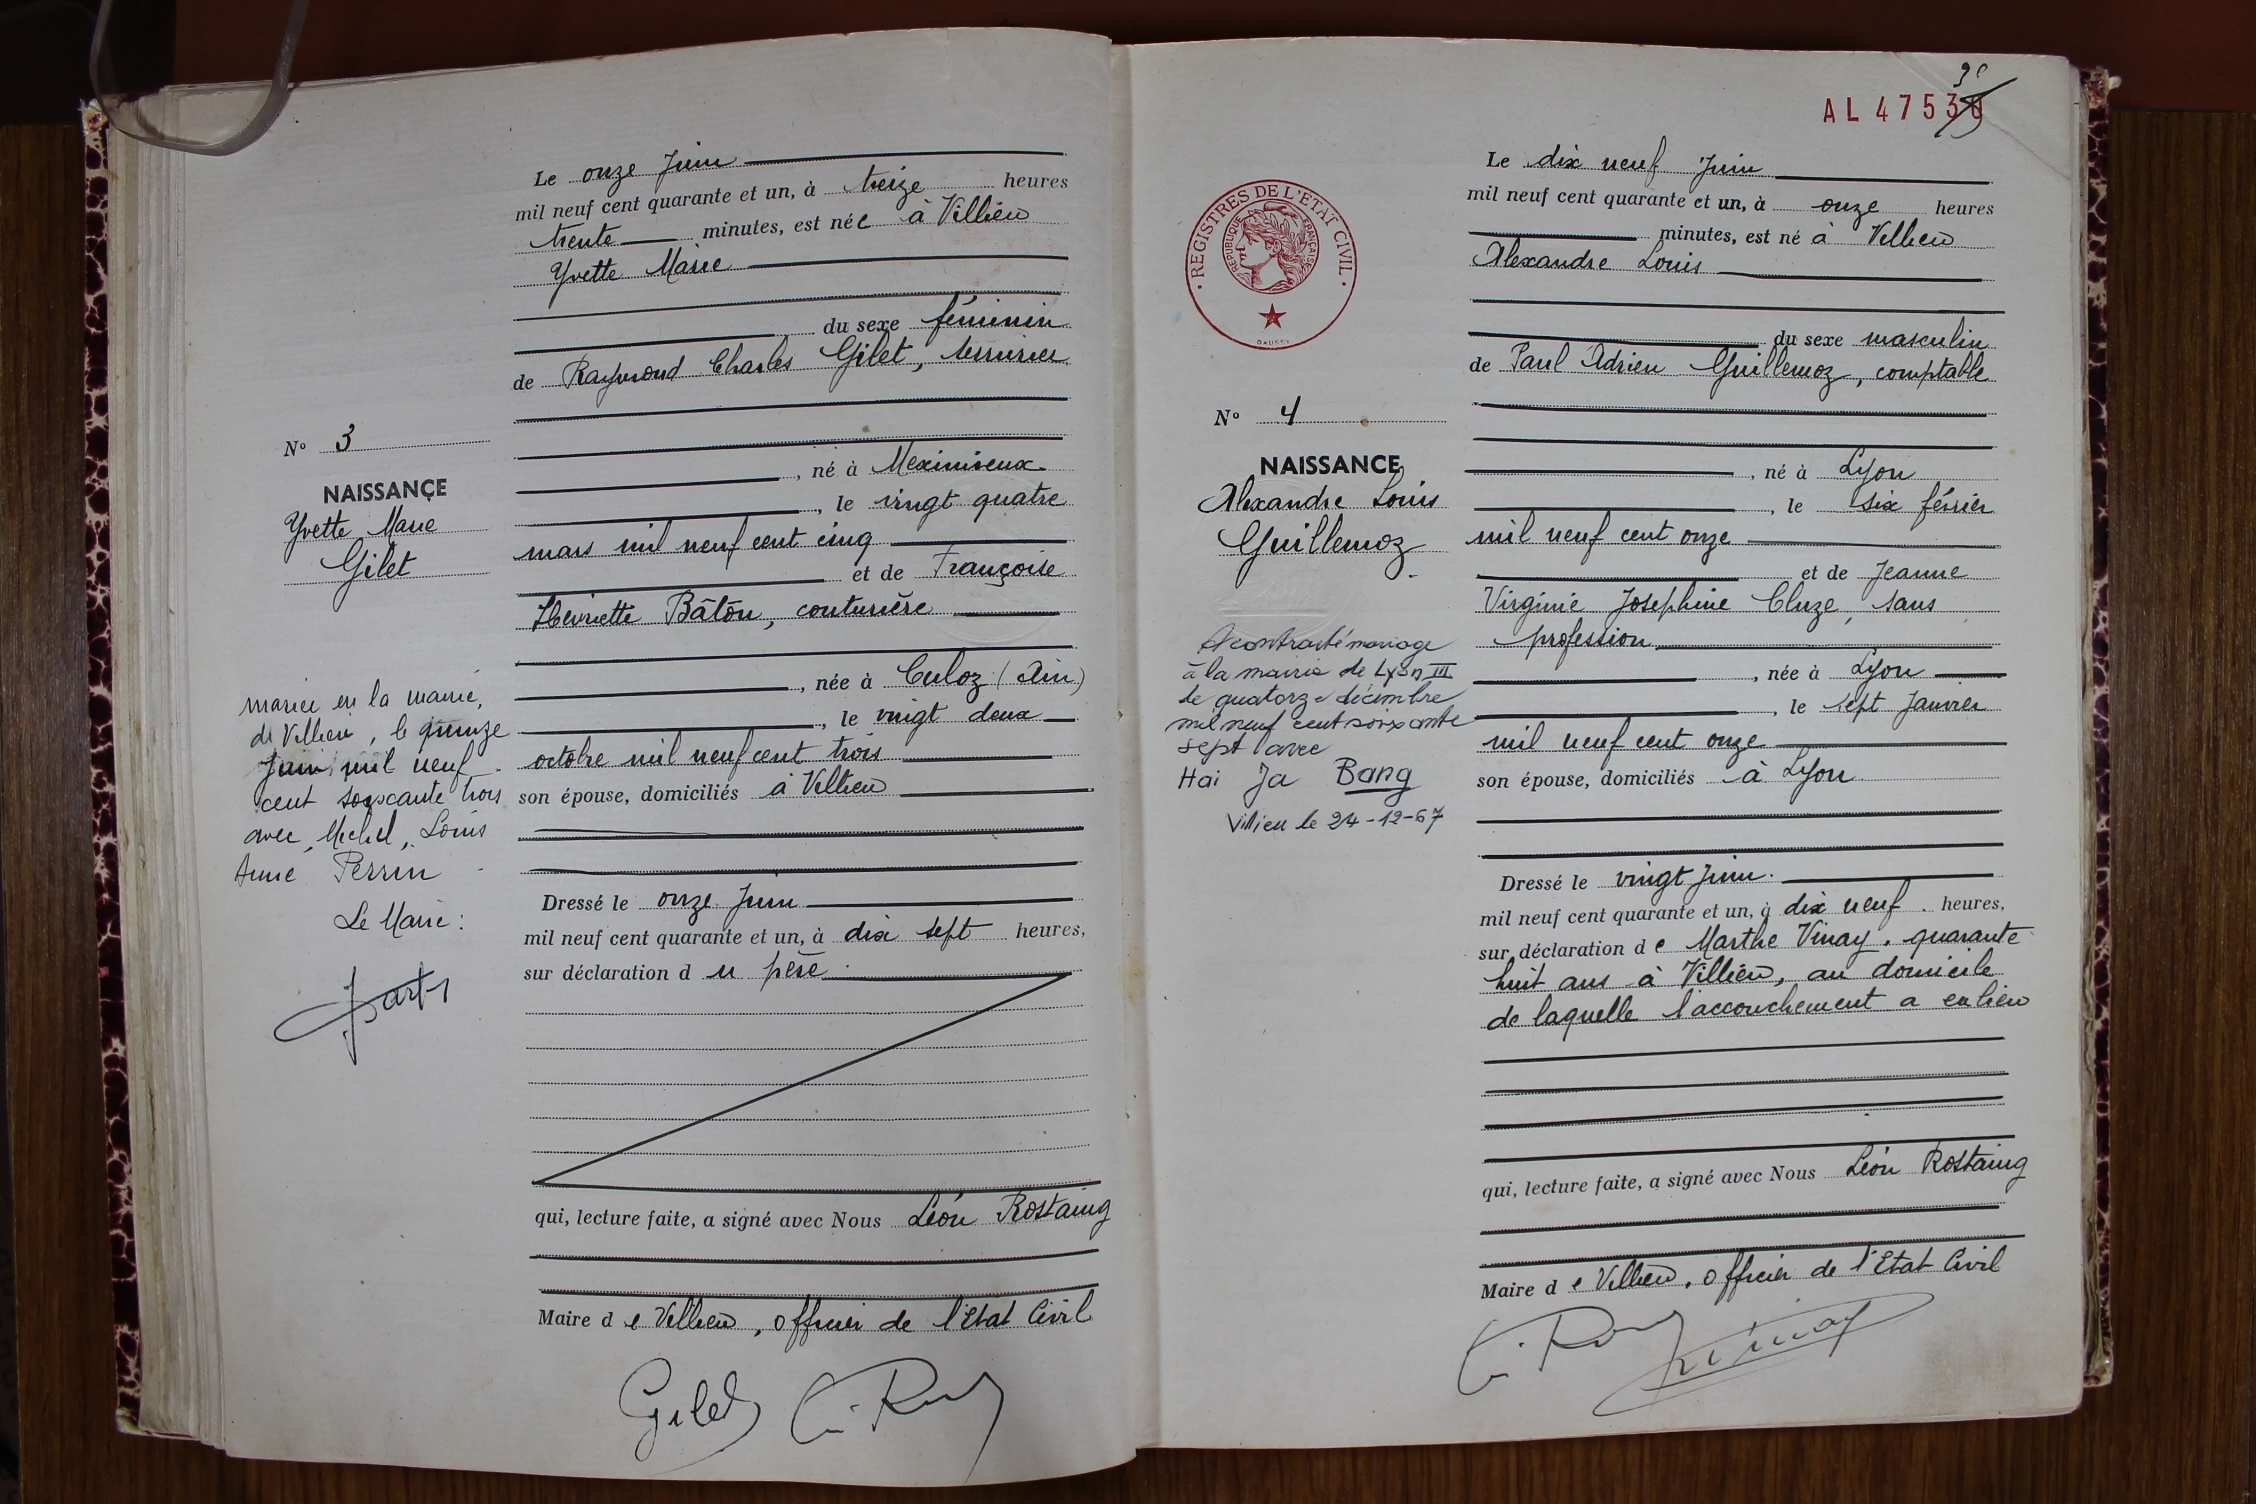 Le onze Juin
mil neuf cent quarante et un, à treize heures
trente minutes, est née à Villieu
Yvette Marie
du sexe féminin
de Raymond Charles Gilet, serrurier
N° 3
NAISSANCE
Yvette Marie
Gilet
, né à Meximieux
, le vingt quatre
mars mil neuf cent cinq
et de Françoise
Henriette Bâton, couturière
, née à Culoz (Ain)
, le vingt deux
octobre mil neuf cent trois
son épouse, domiciliés à Villieu
mariée en la mairie,
de Villieu, le quinze
Juin mil neuf
cent soixante trois
avec, Michel, Louis
Perrin
Le Maire :
Dressé le onze Juin
mil neuf cent quarante et un, à dix sept heures,
sur déclaration du père.
qui, lecture faite, a signé avec Nous Léon Rostaing
Maire de Villieu, officier de l'Etat Civil
Gilet
AL 47530
REGISTRES DE L'ETAT CIVIL
REPUBLIQUE FRANÇAISE
Le dix neuf Juin
mil neuf cent quarante et un, à onze heures
minutes, est né à Villieu
Alexandre Louis
du sexe masculin
de Paul Adrien Guillemoz, comptable
N° 4
NAISSANCE
Alexandre Louis
Guillemoz
, né à Lyon
, le six février
mil neuf cent onze
et de Jeanne
Virginie Josephine Cluze, sans
profession
, née à Lyon
, le sept Janvier
mil neuf cent onze
son épouse, domiciliés à Lyon
A contracté mariage
à la mairie de Lyon III
le quatorze décembre
mil neuf cent soixante
sept avec
Hai Ja Bang
Villieu le 24-12-67
Dressé le vingt Juin.
mil neuf cent quarante et un, à dix neuf heures,
sur déclaration de Marthe Vinay, quarante
huit ans à Villieu, au domicile
de laquelle l'accouchement a eu lieu
qui, lecture faite, a signé avec Nous Léon Rostaing
Maire de Villieu, officier de l'Etat Civil